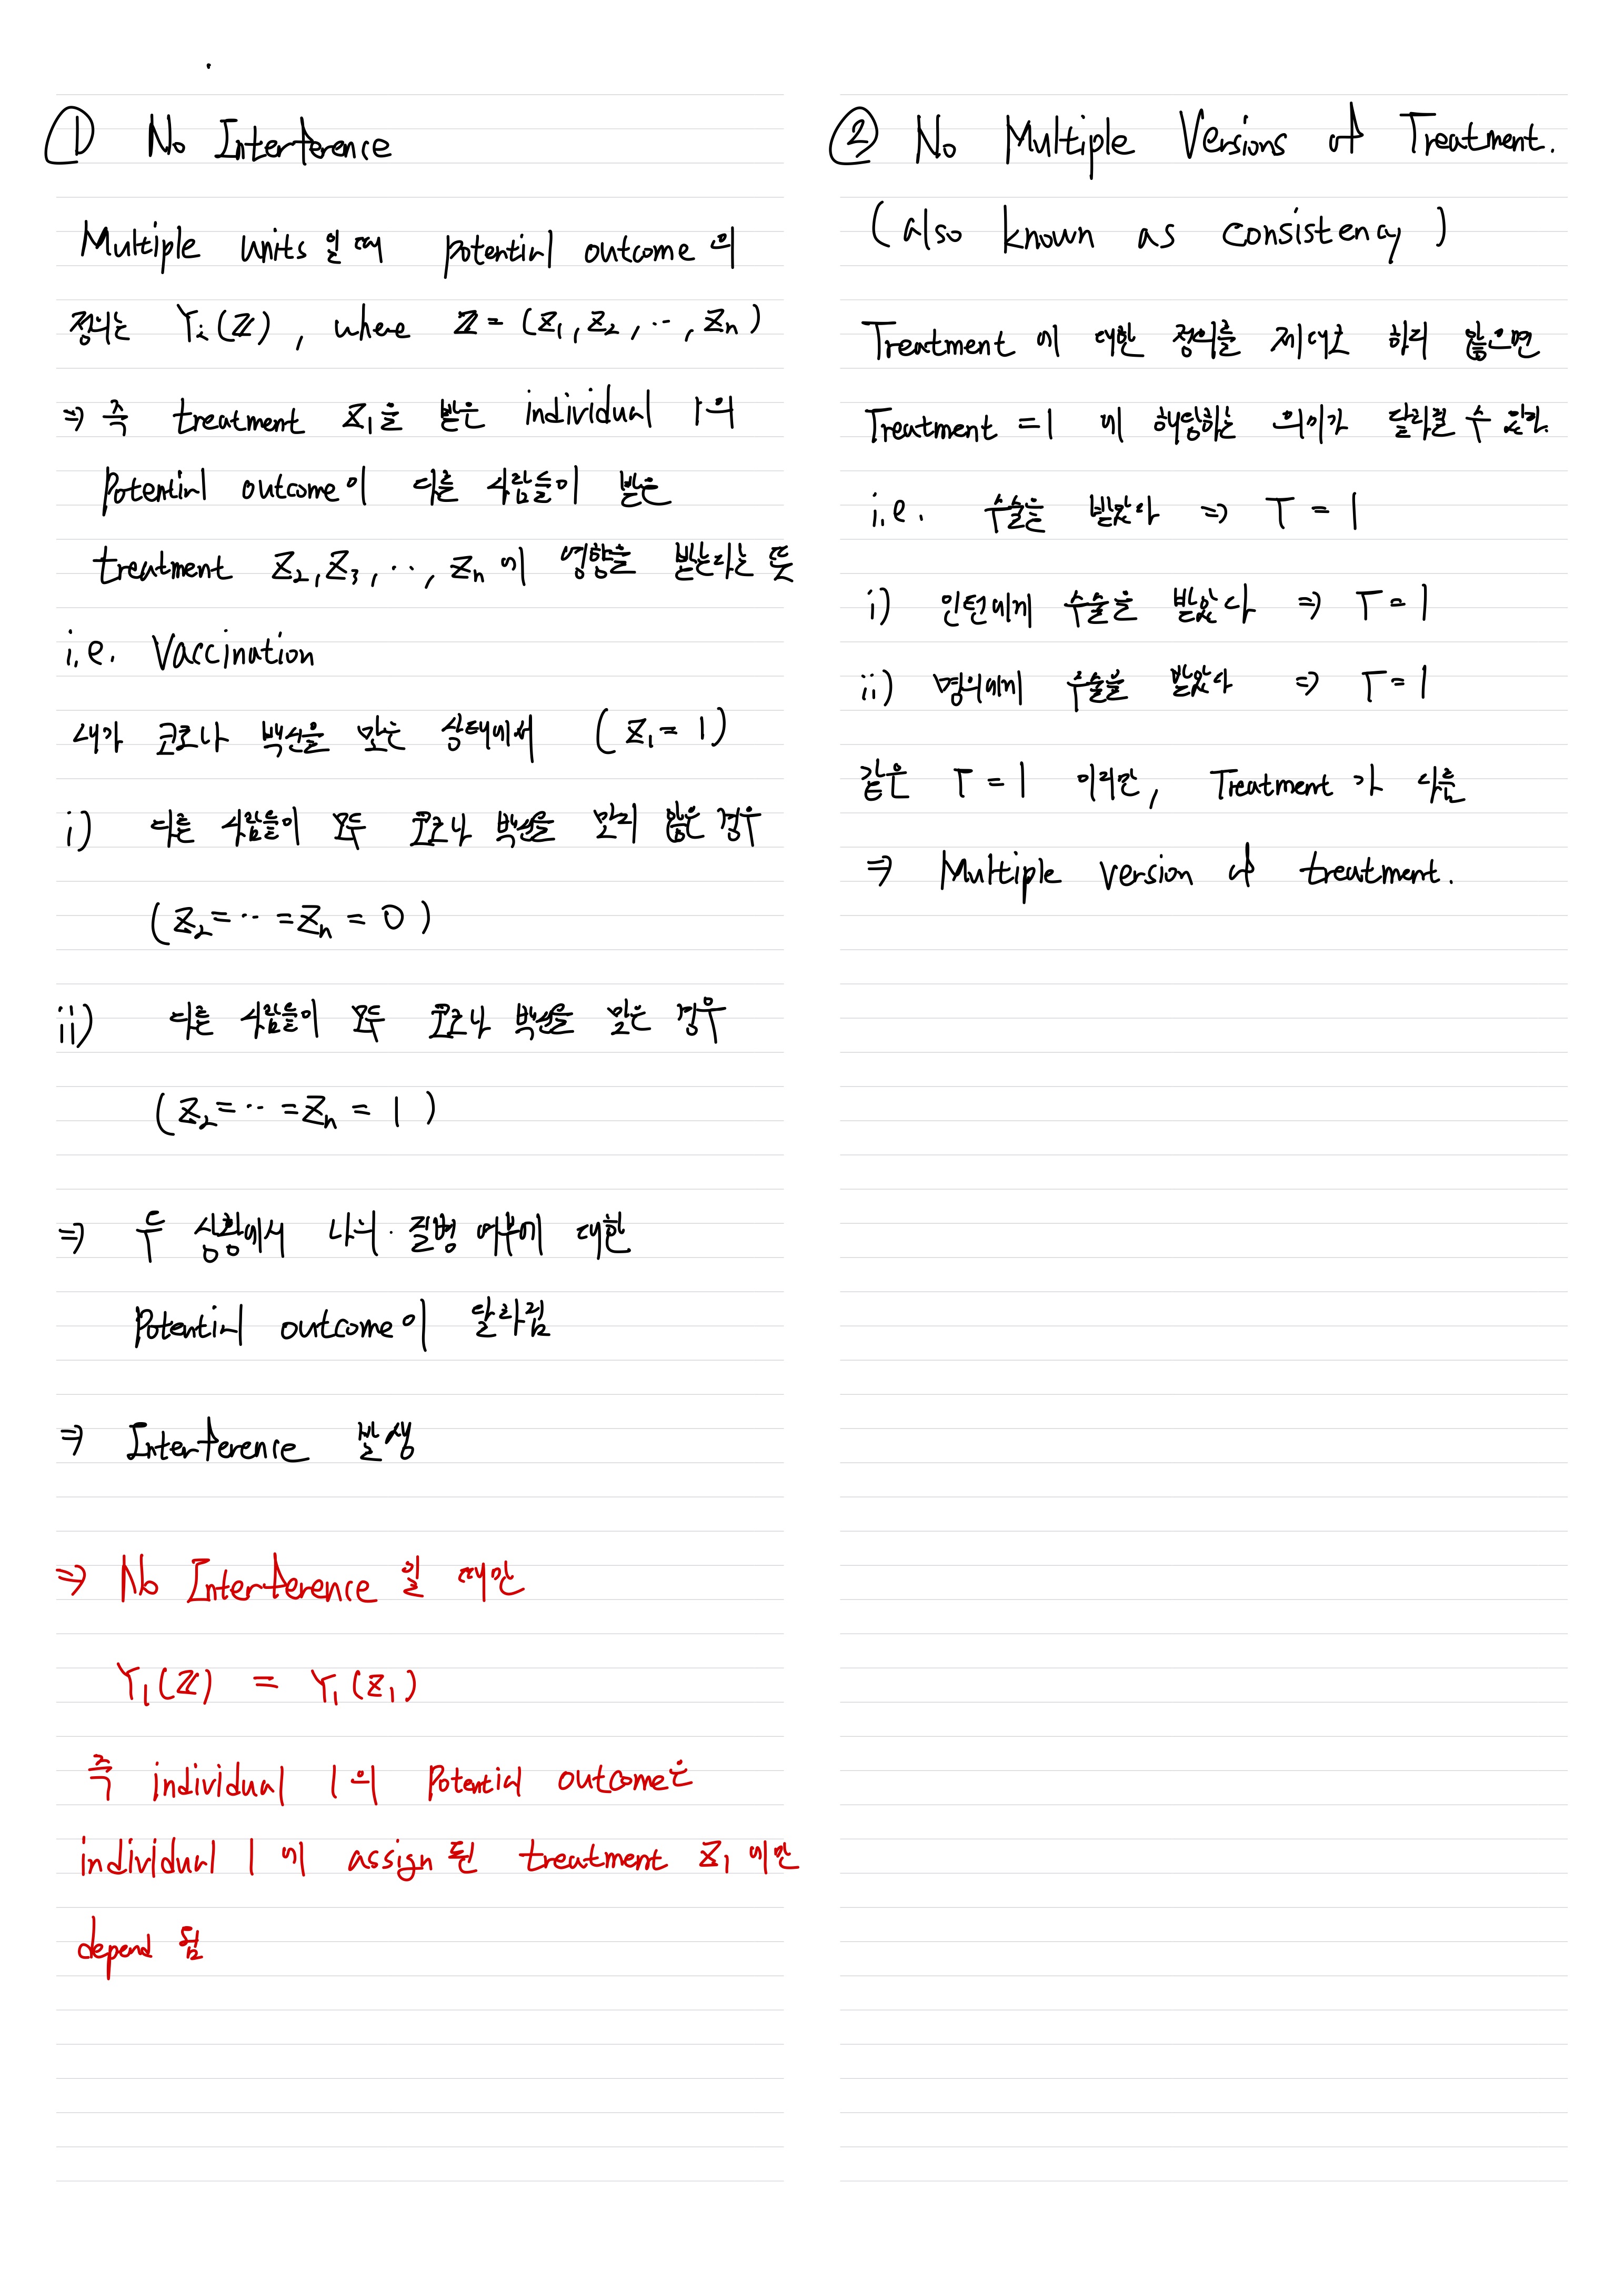 ① No Interference
Multiple units일 때 potential outcome의
정의는 Yᵢ(ℤ), where ℤ = (z₁, z₂, ‥, zₙ)
⇒ 즉 treatment z₁을 받은 individual 1의
potential outcome이 다른 사람들이 받은
treatment z₂, z₃, ‥, zₙ에 영향을 받는다는 뜻
i.e. Vaccination
내가 코로나 백신을 맞은 상태에서 (z₁ = 1)
i) 다른 사람들이 모두 코로나 백신을 맞지 않은 경우
(z₂ = ‥ = zₙ = 0)
ii) 다른 사람들이 모두 코로나 백신을 맞은 경우
(z₂ = ‥ = zₙ = 1)
⇒ 두 상황에서 나의 질병 여부에 대한
potential outcome이 달라짐
⇒ Interference 발생
⇒ No Interference 일 때만
Y₁(ℤ) = Y₁(z₁)
즉 individual 1의 potential outcome은
individual 1에 assign된 treatment z₁에만
depend 됨
② No Multiple Versions of Treatment.
(also known as consistency)
Treatment에 대한 정의를 제대로 하지 않으면
Treatment = 1 에 해당하는 의미가 달라질 수 있다.
i.e. 수술을 받았다 ⇒ T = 1
i) 인턴에게 수술을 받았다 ⇒ T = 1
ii) 명의에게 수술을 받았다 ⇒ T = 1
같은 T = 1 이지만, Treatment가 다름
⇒ Multiple version of treatment.